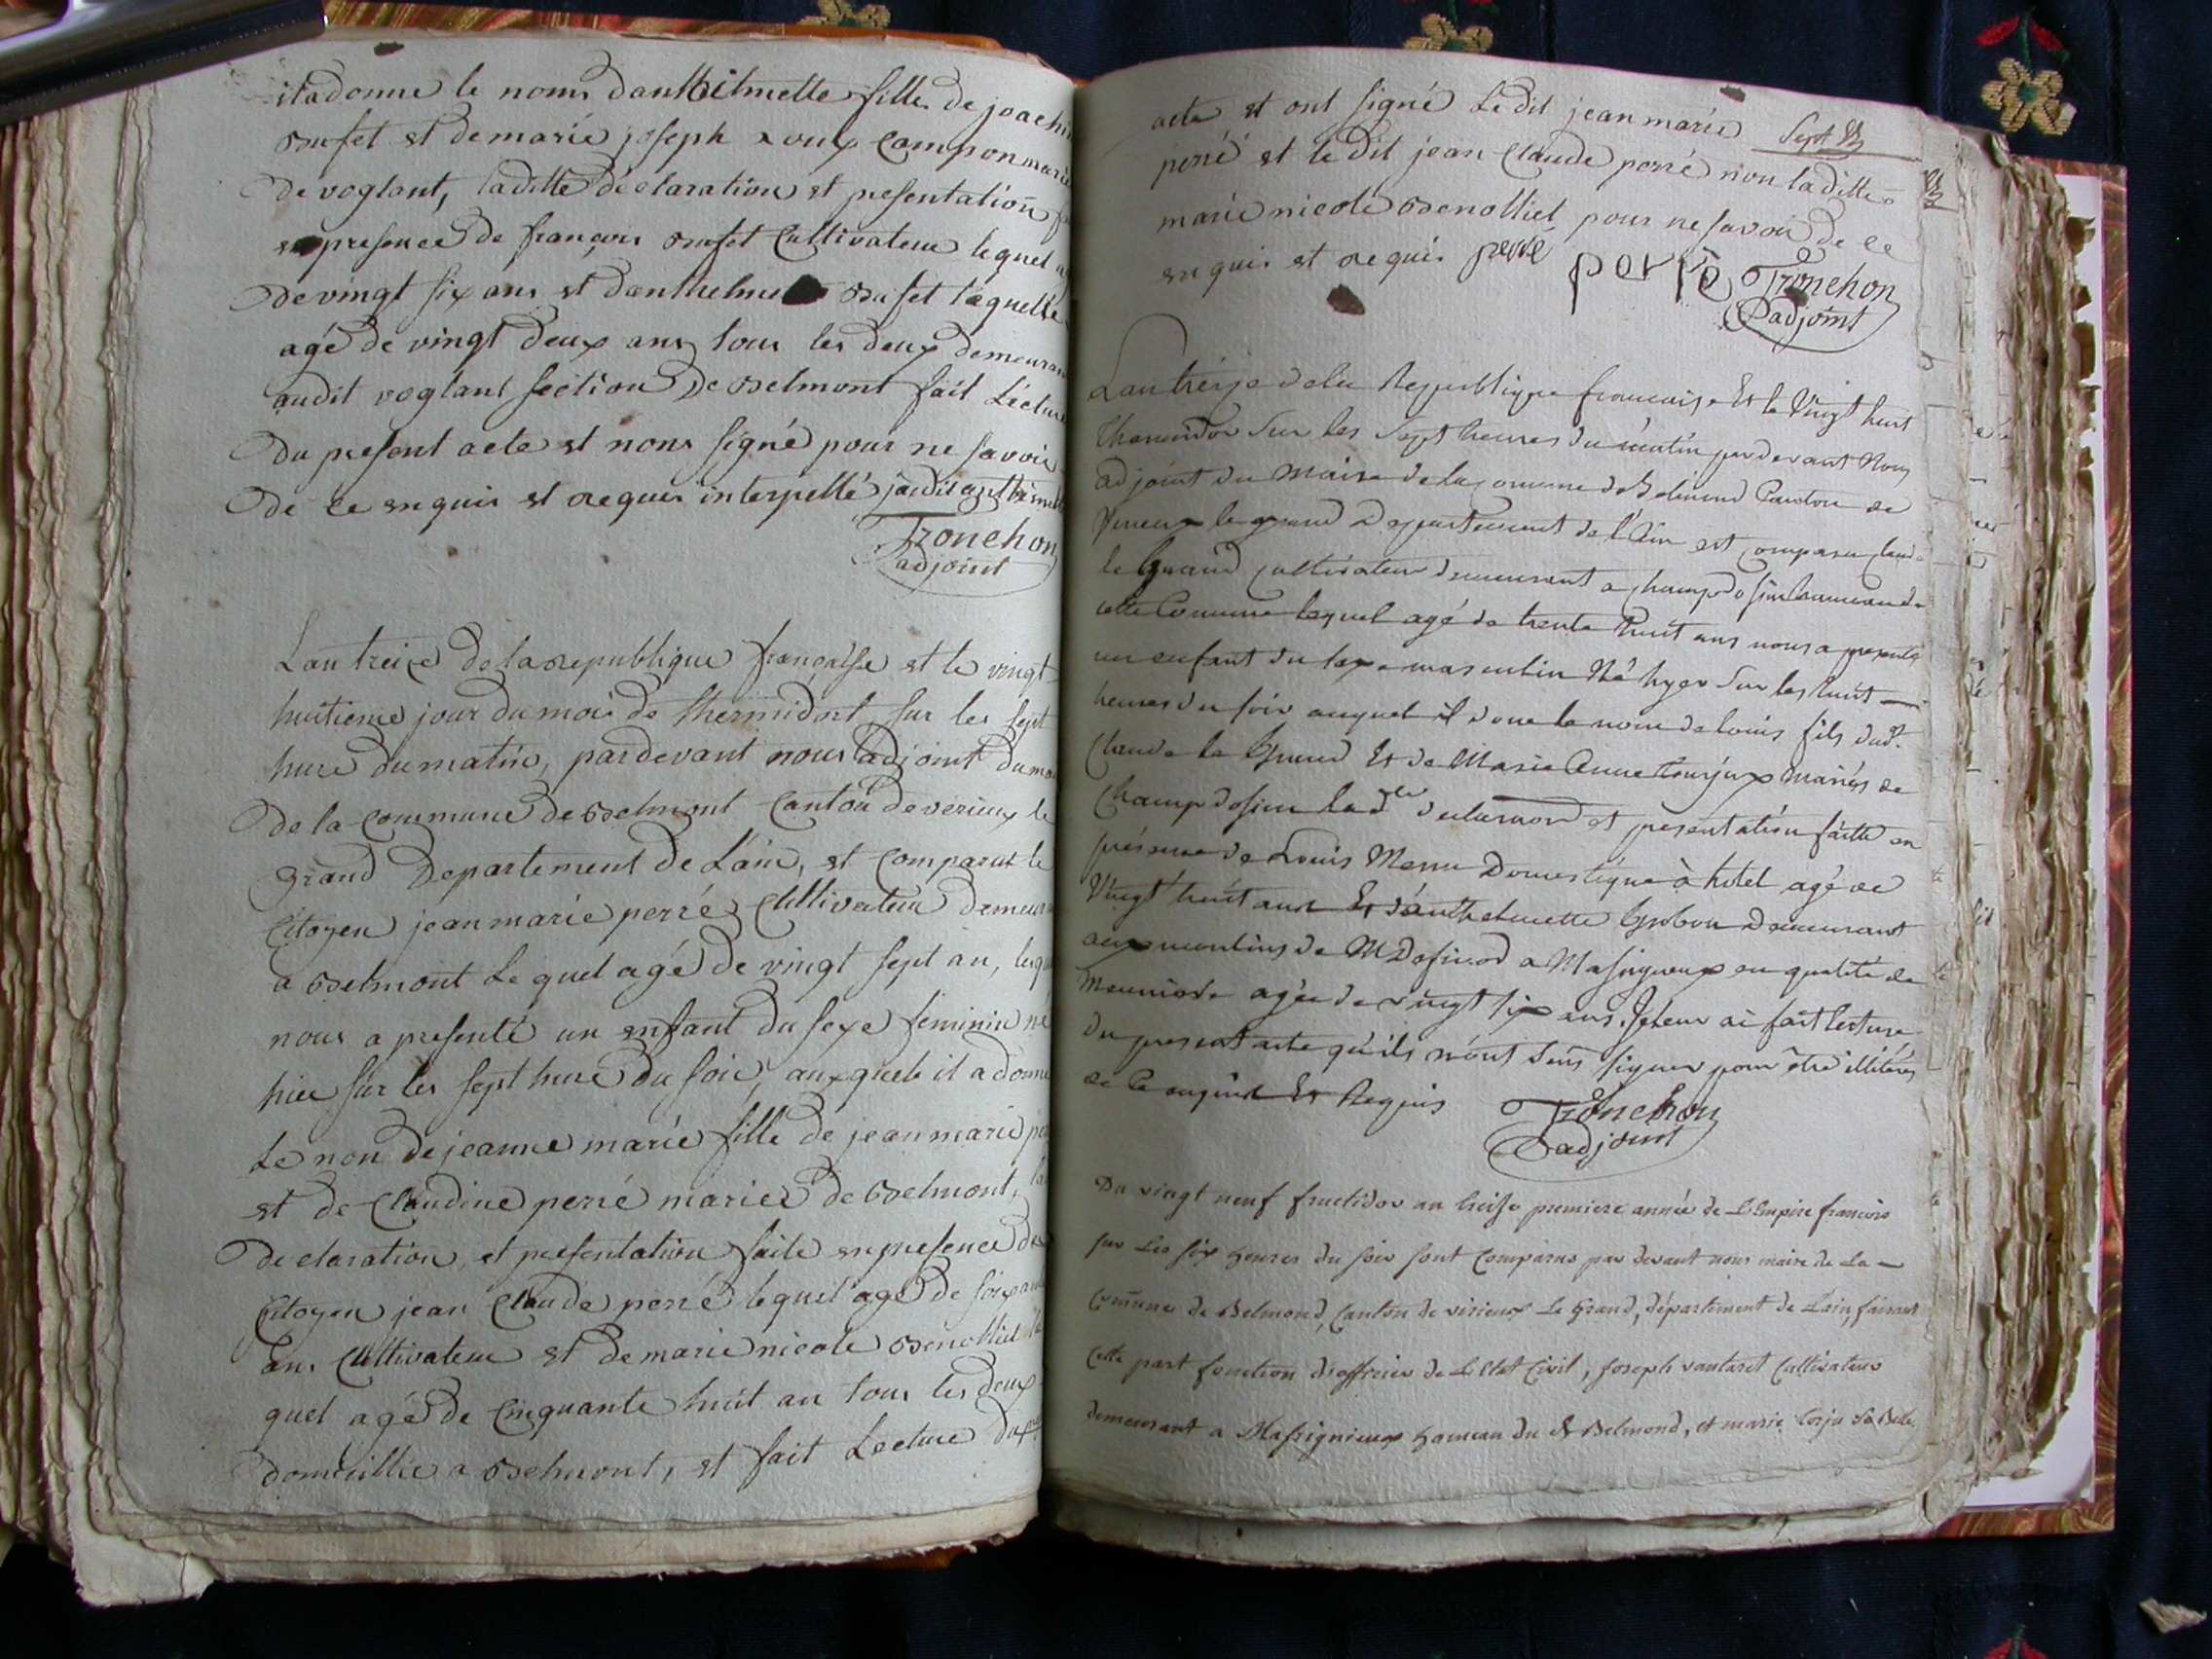 il a donne le noms danthelmette fille de joachi
et de marie joseph roux Campon marié
de voglant, ladille déclaration et presentation
en presence de françois Cultivateur lequel
de vingt six ans et danthelme laquelle
agé de vingt deux ans tous les deux demeuran
audit voglant section de belmont fait Lectur
du present acte et nons signé pour ne savoir
de ce enquis et requis interpellé
Tronchon
adjoint
Lan treize de la republique française et le vingt
huitieme jour du mois de thermidort, sur les sept
hure du matin, pardevant nous adjoint du ma
de la commune de belmont Canton de verieux le
grand Departement de Lain, et comparut le
Citoyen jean marie perré Cultivateur demeur
a belmont Lequel agé de vingt sept an, lequ
nous a presenté un enfant du sexe feminin né
hier sur les sept hure du soir, auxquele il a donne
Le non de jeanne marie fille de jean marie pe
et de Claudine perré mariés de belmont, la
declaration, et presentation faite en presence du
Citoyen jean Claude perré lequel agé de
ans Cultivateur et de marie nicole benolliet la
quel agé de Cinquante huit an tous les deux
domicillié a belmont, et fait Lecture du p
acte et ont signé Le dit jean marie
Sept
perré et le dit jean Claude perré non ladille
marie nicole benolliet pour ne savoir de ce
enquis et requis perré perré Tronchon
adjoint
Lan treize de la Republique francaise Et le Vingt huit
thermidor Sur les Sept heures du matin par devant Nous
adjoint du Maire de la Comune de Belmond Canton de
Virieux le grand Departement de l'Ain est comparu Claude
le Grand cultivateur demeurant a champdosin hameau de
cette Comune lequel agé de trente huit ans nous a presenté
un enfant du sexe masculin Né hyer Sur les huit
heures du soir auquel il done le nom de louis fils dudt.
Claude le Grand Et de Marie Anne mariés de
Champdosin lade declaration et presentation faitte en
présence de Louis Domestique à hotel agé de
Vingt huit ans Et d'anthelmette Grobon Demeurant
aux moulins de M a Massigneux en qualité de
Meuniere agée de vingt six ans. Je leur ai fait lecture
du present acte qu'ils n'ont Seus signer pour être illiterés
de Ce enquis Et Requis Tronchon
adjoint
Du vingt neuf fructidor an treise premiere année de L'Empire francois
sur Les six heures du soir sont Comparus par devant nous maire de La
Comune de Belmond, Canton de virieux Le Grand, département de Lain, faisant
Cette part fonction d'officier de L'Etat Civil, Joseph vautaret Cultivateur
demeurant a Massignieux hameau du dt Belmond, et marie